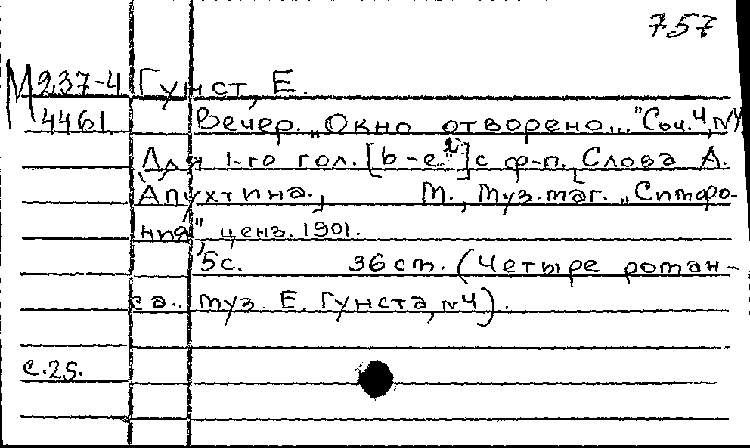 757
М 237-4 Гунст, Е.
4461 Вечер. „Окно отворено..." Соч. 4, №4
Для 1-го гол. [b-e²] с ф-п. Слова А.
Апухтина.
М., Муз. маг. „Симфо-
ния", ценз. 1901.
5с. 36 см. (Четыре роман-
са. муз. Е. Гунста, №4).
с.25.